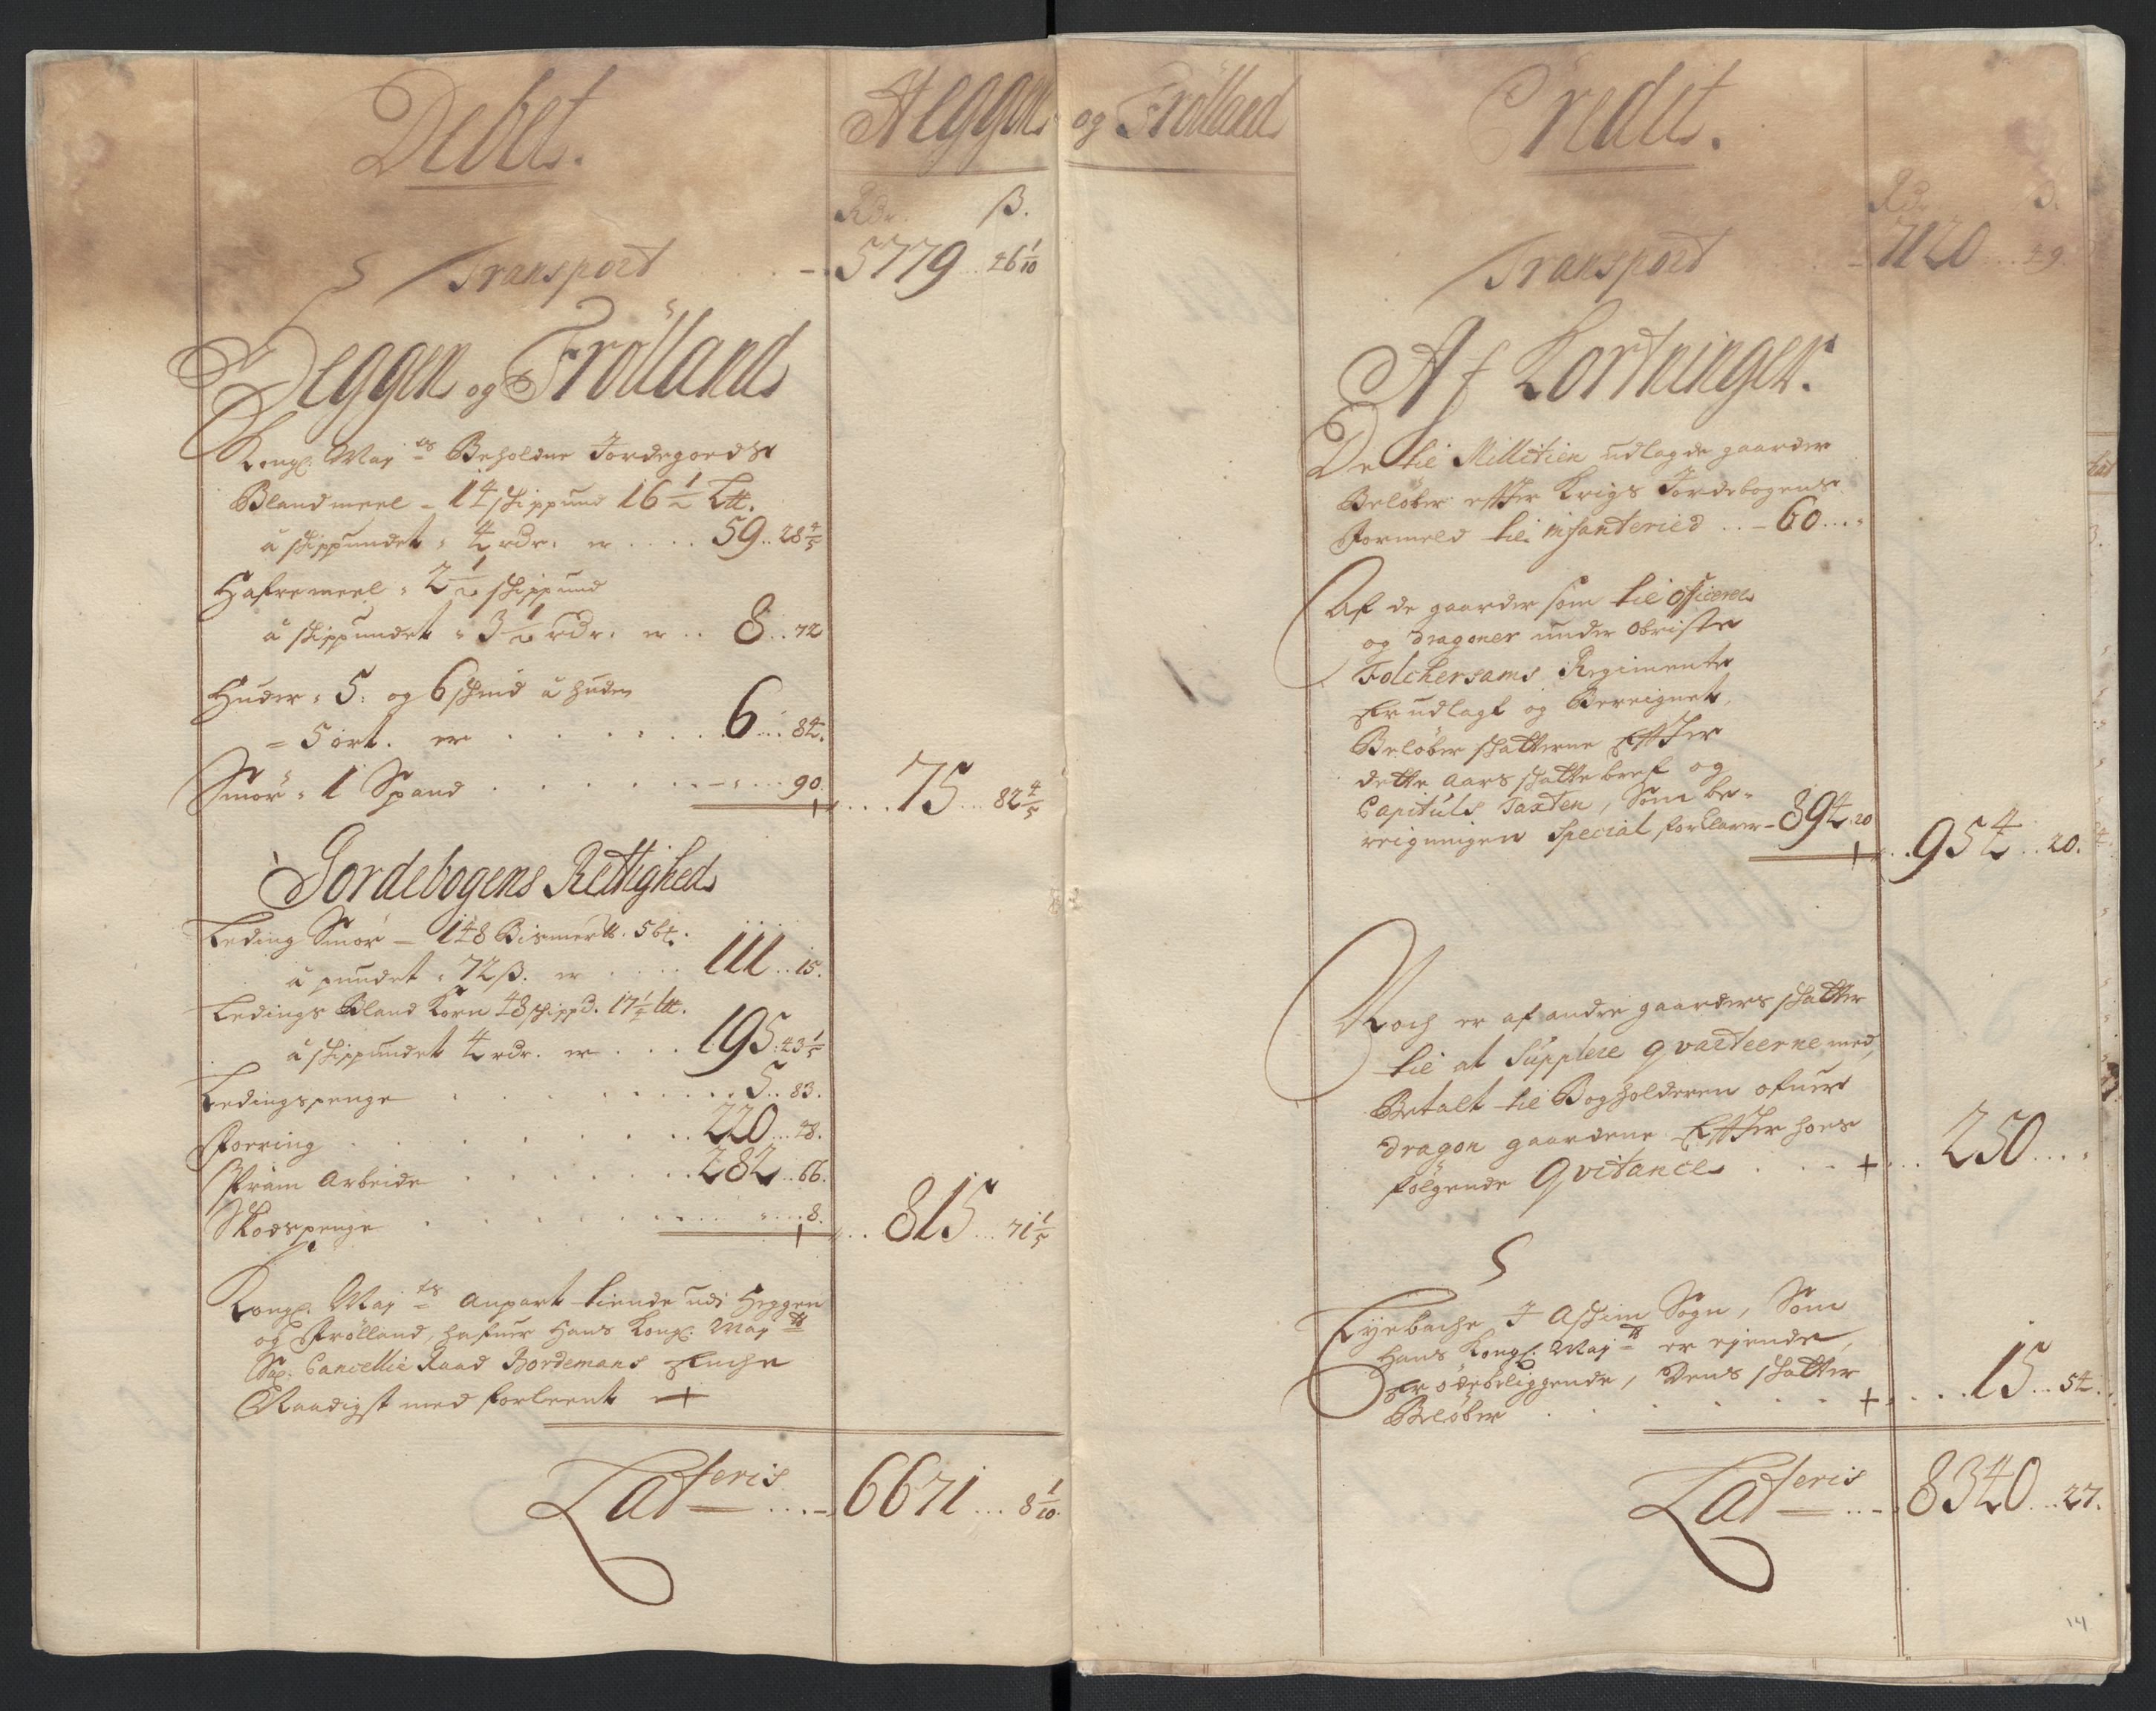 Debet.
Heggen
Rdr. ß.
Transport 5779 .. 46 1/10
Heggen og Frölland
Kongl: May ts Beholdne Jordegoedtz
Blandmeel - 14 skippund 16 1/2 Ltt.
â skippundet : 4 rdr: er .... 59 .. 28 4/5
Hafremeel : 2 1/2 skippund
â skippundet : 3 1/2 rdr. er .. 8 .. 72
Huder : 5: og 6 skind â huden
= 5 ort. er ...... 6 ... 84.
Smör : 1 Spand ...... 90.
75 ... 82 4/5
Jordebogens Rettighed
Leding Smör - 148 Bismertt. 5 bt.
â pundet : 72 ß. er .... 111 .. 15.
Ledings Bland Korn 48 skippd. 17 1/2 ltt.
â skippundet 4 rdr. er ... 195 . 43 1/5
Ledingspenge ...... 5 .. 83.
Foering ...... 220 ... 48.
Pram Arbeide ...... 282 .. 66.
Skodspenge ...... 8.
815 ... 71 1/5
Kongl: May ts Anpart tiende udi Heggen
og Frölland, hafuer Hans Kongl: May tt
Sal: Cancellie Raad Bordemans Enche
Naadigst med forleent +
Lateris ... 6671 ... 8 1/10
og Frölland
Credit.
Rd. ß.
Transport 7120 ... 49
Af Kortninger.
De til Millitien udlagde gaarder
Beløber efter Krigs Jordebogens
Formeld til infanteried .. - 60 ...
Af de gaarder som til officerer
og Dragoner under Obriste
Folckersams Regimente
Er udlagt og Bereignet,
Beløber skatterne Effter
dette Aars skattebref og
Capituls Taxten, Som be-
reigningen Special forklarer - 894 . 20
954 .. 20.
Noch er af andre gaarders skatter
til at Supplere qvarteerne med,
Betalt til Bogholderen ofuer
Dragon gaardene Effter hoes
følgende Qvitance ... + ... 250 ....
Eyebache I Askim Sogn, Som
Hans Kongl: May tt er ejende,
Er ödebeliggende, Dens skatter
Beløber ...... + .... 15 .. 54.
Lateris ... 8340 ... 27.
14